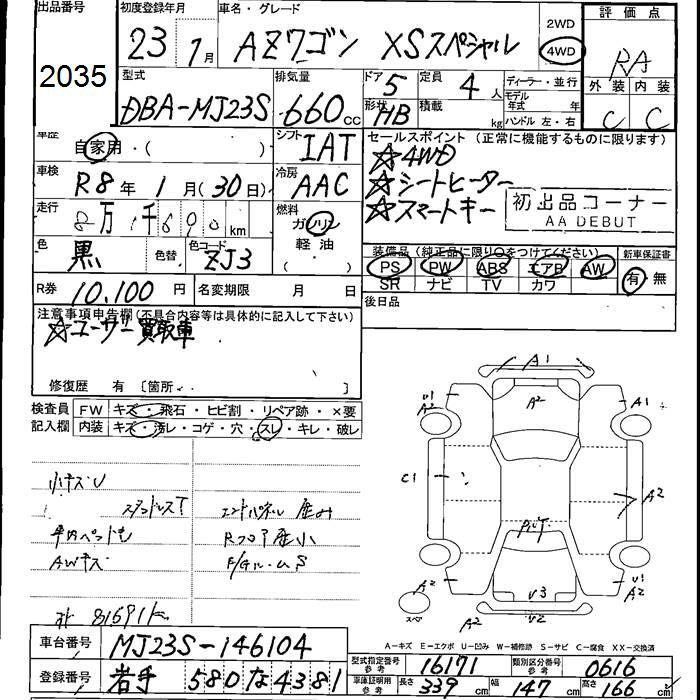 出品番号 初度登録年月 車名・グレード 評価点
2035 23 年 7月 AZワゴン XSスペシャル 2WD 4WD RA
型式 排気量 ドア 5 定員 4 人 ディーラー・並行 外装 内装
DBA-MJ23S 660cc 形状 HB 積載 kg モデル年式 年式 ハンドル 左・右 C C
車歴 自家用・( ) シフト IAT セールスポイント (正常に機能するものに限ります)
☆4WD
車検 R8年 1月(30日) 冷房 AAC ☆シートヒーター
☆スマートキー 初出品コーナー
AA DEBUT
走行 8万1千690km 燃料 ガソリン
軽油
( )
色 黒 色替 色コード ZJ3 装備品 (純正品に限り○をつけてください) 新車保証書
PS PW ABS エアB AW 有・無
SR ナビ TV カワ
R券 10,100円 名変期限 月 日 後日品
注意事項申告欄 (不具合内容等は具体的に記入して下さい)
☆ユーザー買取車
修復歴 有 [箇所 ]
検査員 FW キズ・飛石・ヒビ割・リペア跡・×要
記入欄 内装 キズ・汚レ・コゲ・穴・スレ・キレ・破レ
小キズU
スタッドレスT エンドパネル 歪み
車内ペット毛 Rフロア歪小
AWキズ
81691k
A1
U1 A2 A2 A1
C1 A2
A2 U3 U1 A2
スペア U2
A-キズ E-エクボ U-凹み W-補修跡 S-サビ C-腐食 XX-交換済
車台番号 MJ23S-146104 型式指定番号 参考 16171 類別区分番号 参考 0616
登録番号 岩手 580 な 4381 車庫証明用 参考 長さ 339cm 幅 147cm 高さ 166cm